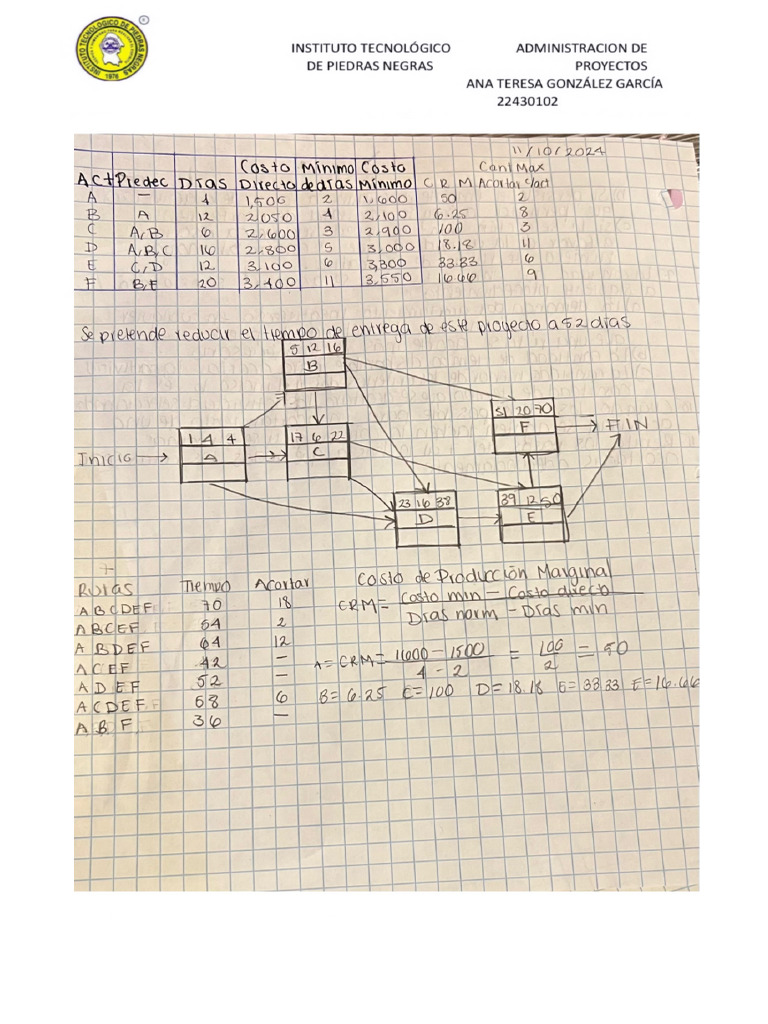 INSTITUTO TECNOLÓGICO DE PIEDRAS NEGRAS
1976
INSTITUTO TECNOLÓGICO
DE PIEDRAS NEGRAS
ADMINISTRACION DE
PROYECTOS
ANA TERESA GONZÁLEZ GARCÍA
22430102
11/10/2024
Act Predec Días Costo Directo Mínimo de días Costo Mínimo C R M Cant Max Acortar c/act
A — 4 1,500 2 1,600 50 2
B A 12 2,050 4 2,100 6.25 8
C A,B 6 2,600 3 2,900 100 3
D A,B,C 16 2,800 5 3,000 18.18 11
E C,D 12 3,100 6 3,300 33.33 6
F B,E 20 3,400 11 3,550 16.66 9
Se pretende reducir el tiempo de entrega de este proyecto a 52 días
5 12 16
B
51 20 70
F
FIN
1 4 4
A
17 6 22
C
Inicio
23 16 38
D
39 12 50
E
Rutas Tiempo Acortar
A B C D E F 70 18
A B C E F 54 2
A B D E F 64 12
A C E F 42 —
A D E F 52 —
A C D E F 58 6
A B F 36 —
Costo de Producción Marginal
CRM= Costo min – Costo directo
Días norm – Días min
A=CRM= 1600 – 1500 = 100 = 50
4 – 2 2
B=6.25 C=100 D=18.18 E=33.33 E=16.66